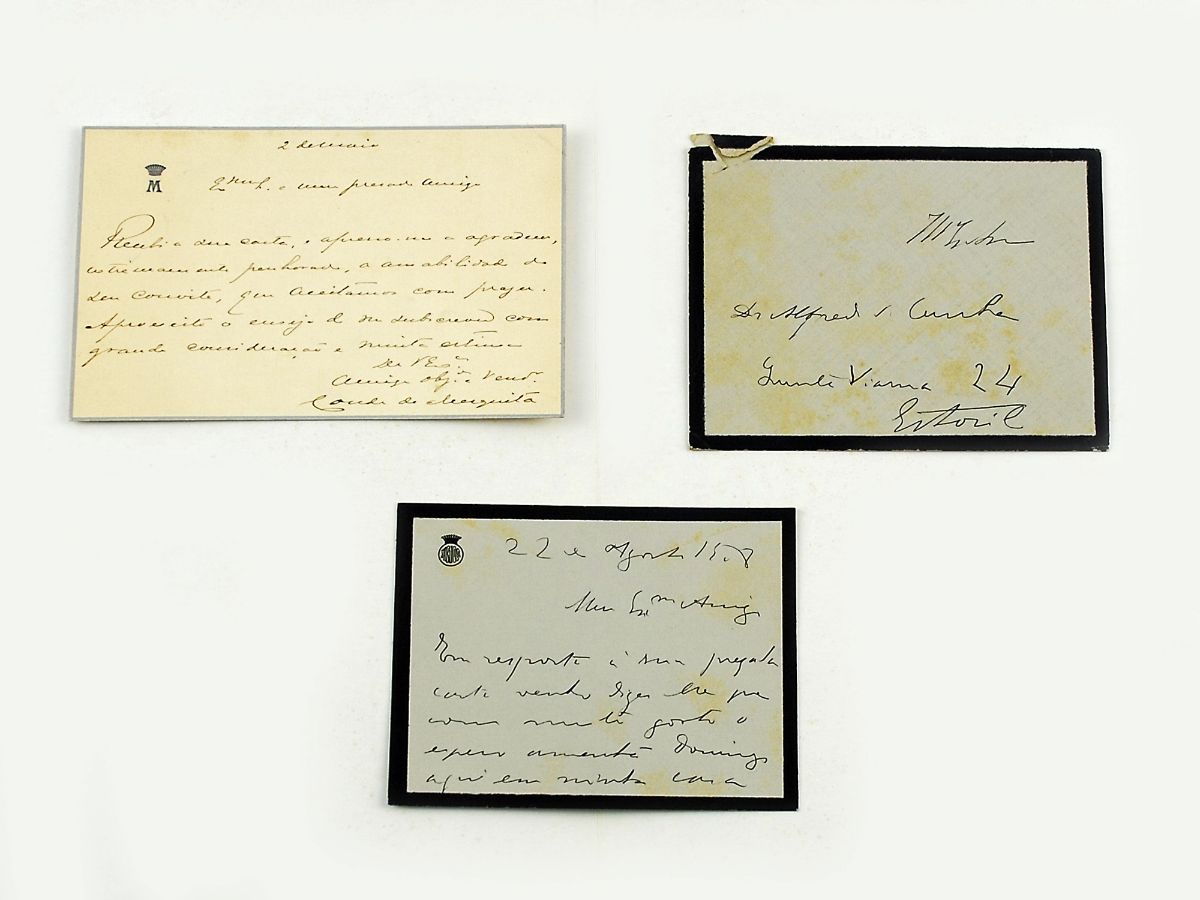 2 de Maio
M
Exmo. S. e meu presado Amigo
Recebi a sua carta, e apresso-me a agradecer,
extremamente penhorado, a amabilidade do
seu convite, que acceitamos com prazer.
Aproveito o ensejo de me subscrever com
grande consideração e muita estima
De V. Exa.
Amigo obgo. e Vendr.
Conde de Mesquita
Dr Alfredo Cunha
Vianna 24
Estoril
22 de Agosto
Meu Exmo Amigo
Em resposta á sua prezada
carta venho dizer lhe que
com muito gosto o
espero amanhã Domingo
aqui em minha casa